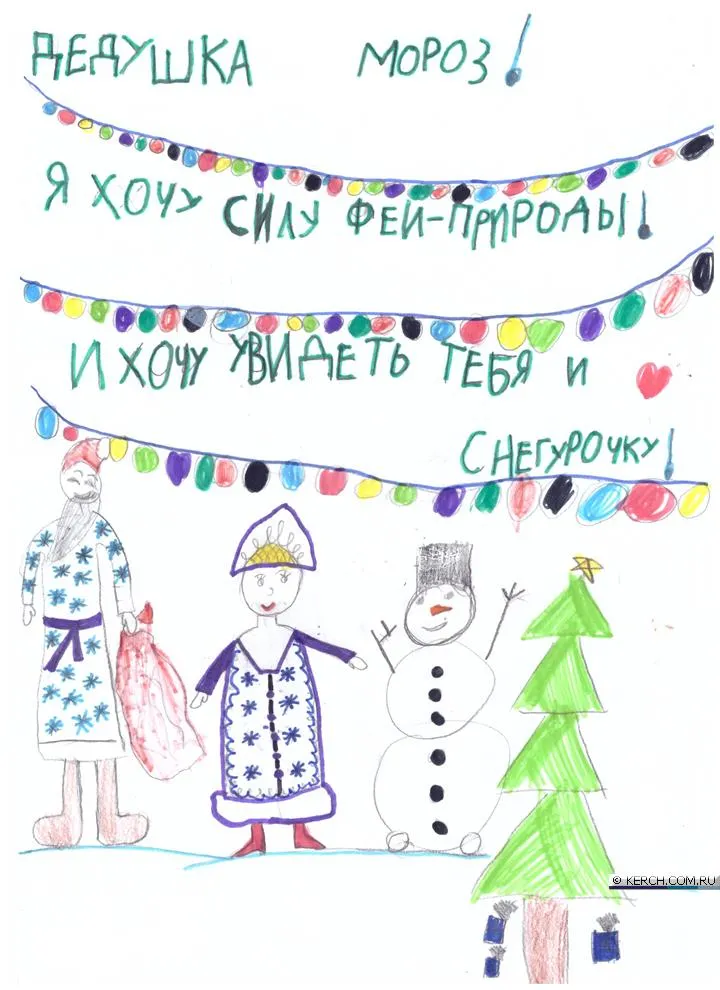 ДЕДУШКА МОРОЗ!
Я ХОЧУ СИЛУ ФЕИ-ПРИРОДЫ!
И ХОЧУ УВИДЕТЬ ТЕБЯ И
СНЕГУРОЧКУ!
© KERCH.COM.RU